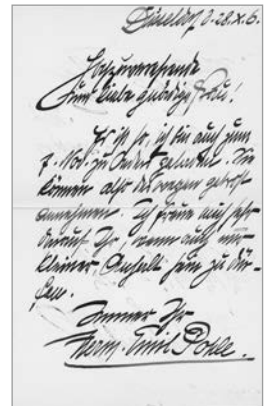 Düsseldorf d. 28.X.6.
Hochzuverehrende
liebe gnädige Frau!
Es ist so, ich bin auch zum
7. Nov. zu geladen. Sie
können also deswegen getrost
annehmen. Ich freue mich sehr
darauf Ihr, wenn auch nur
kleiner, Anhalt sein zu dür-
fen.
Immer Ihr
Herm. Emil Pohle.